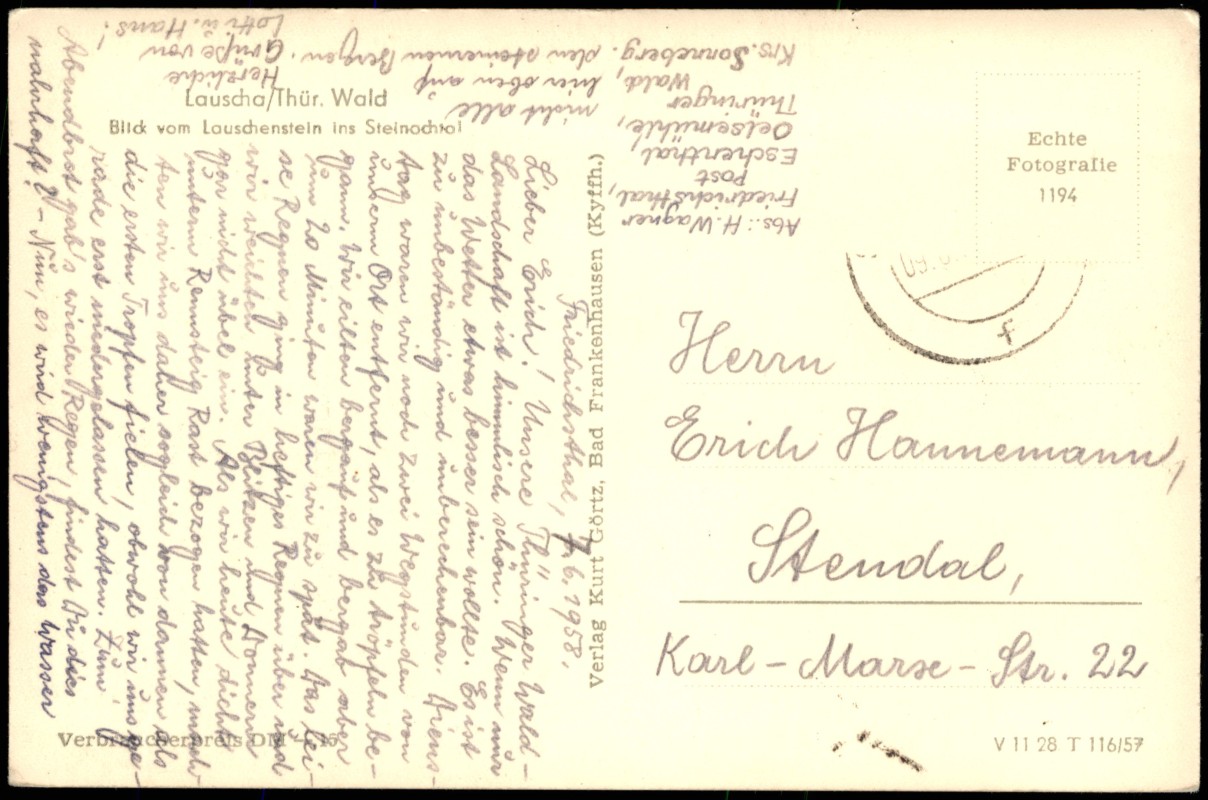 Lauscha/Thür. Wald
Blick vom Lauschenstein ins Steinachtal
Echte
Fotografie
1194
Verlag Kurt Görtz, Bad Frankenhausen (Kyffh.)
Verbraucherpreis DM
V 11 28 T 116/57
09.
f
Abs.: H. Wagner
Friedrichsthal,
Post
Eschenthal
Oelsemühle,
Thüringer
Wald,
Krs. Sonneberg.
Herrn
Erich Hannemann,
Stendal,
Karl-Marx-Str. 22
Friedrichsthal, 7.6.1958.
Lieber Erich! Unsere Thüringer Wald-
Landschaft ist himmlisch schön. Wenn nur
das Wetter etwas besser sein wollte. Es ist
zu unbeständig und unberechenbar. Diens-
tag waren wir noch zwei Wegstunden von
unserm Ort entfernt, als es zu tröpfeln be-
gann. Wir eilten bergauf und bergab aber
um 20 Minuten waren wir zu spät. Das lei-
se Regnen ging in heftiges Regnen über und
wir weichten unter Blitzen und Donnern
gar nicht übel ein. Als wir heute dicht
unterm Rennsteig Rast bezogen hatten, mach-
ten wir uns daher sogleich von dannen als
die ersten Tropfen fielen, obwohl wir uns ge-
rade erst niedergelassen hatten. Zum
Abendbrot gab's wieder Regen, findest Du dies
nahrhaft? - Nun, es wird wenigstens das Wasser
nicht alle,
hier oben auf
den steinernen Bergen.
Herzliche
Grüße von
Lotti u. Hans!